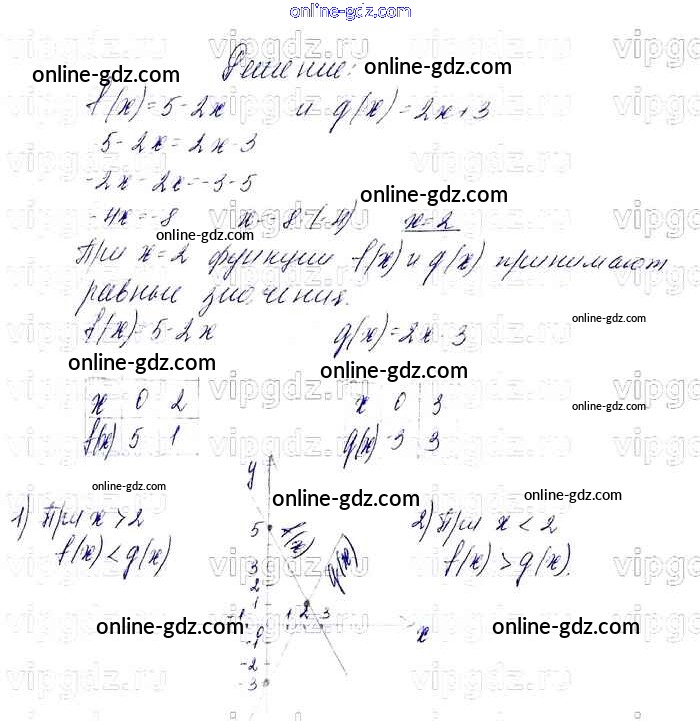 online-gdz.com
Решение:
online-gdz.com
online-gdz.com
f(x) = 5 - 2x и g(x) = 2x + 3
5 - 2x = 2x - 3
-2x - 2x = -3 - 5
online-gdz.com
-4x = -8 x = -8 : (-4) x = 2
online-gdz.com
При x = 2 функции f(x) и g(x) принимают
равные значения.
f(x) = 5 - 2x g(x) = 2x - 3
online-gdz.com
online-gdz.com
online-gdz.com
x 0 2
f(x) 5 1
x 0 3
g(x) -3 3
online-gdz.com
online-gdz.com
online-gdz.com
online-gdz.com
1) При x > 2
f(x) < g(x)
y
5
3
2
1
-1 0 1 2 3 x
-1
-2
-3
f(x)
g(x)
2) При x < 2
f(x) > g(x).
online-gdz.com
online-gdz.com
vipgdz.ru